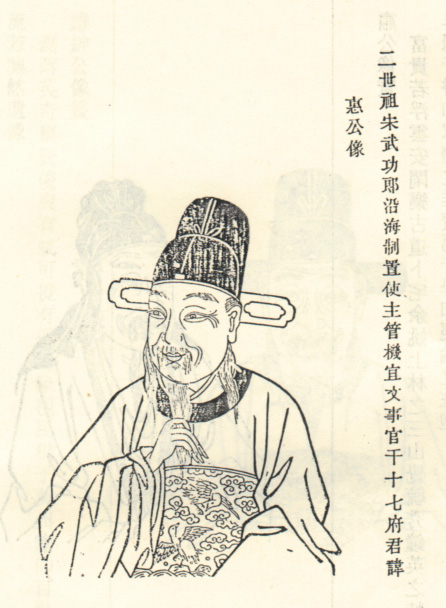 二世祖宋武功郎沿海制置使主管機宜文事官千十七府君諱
惠公像